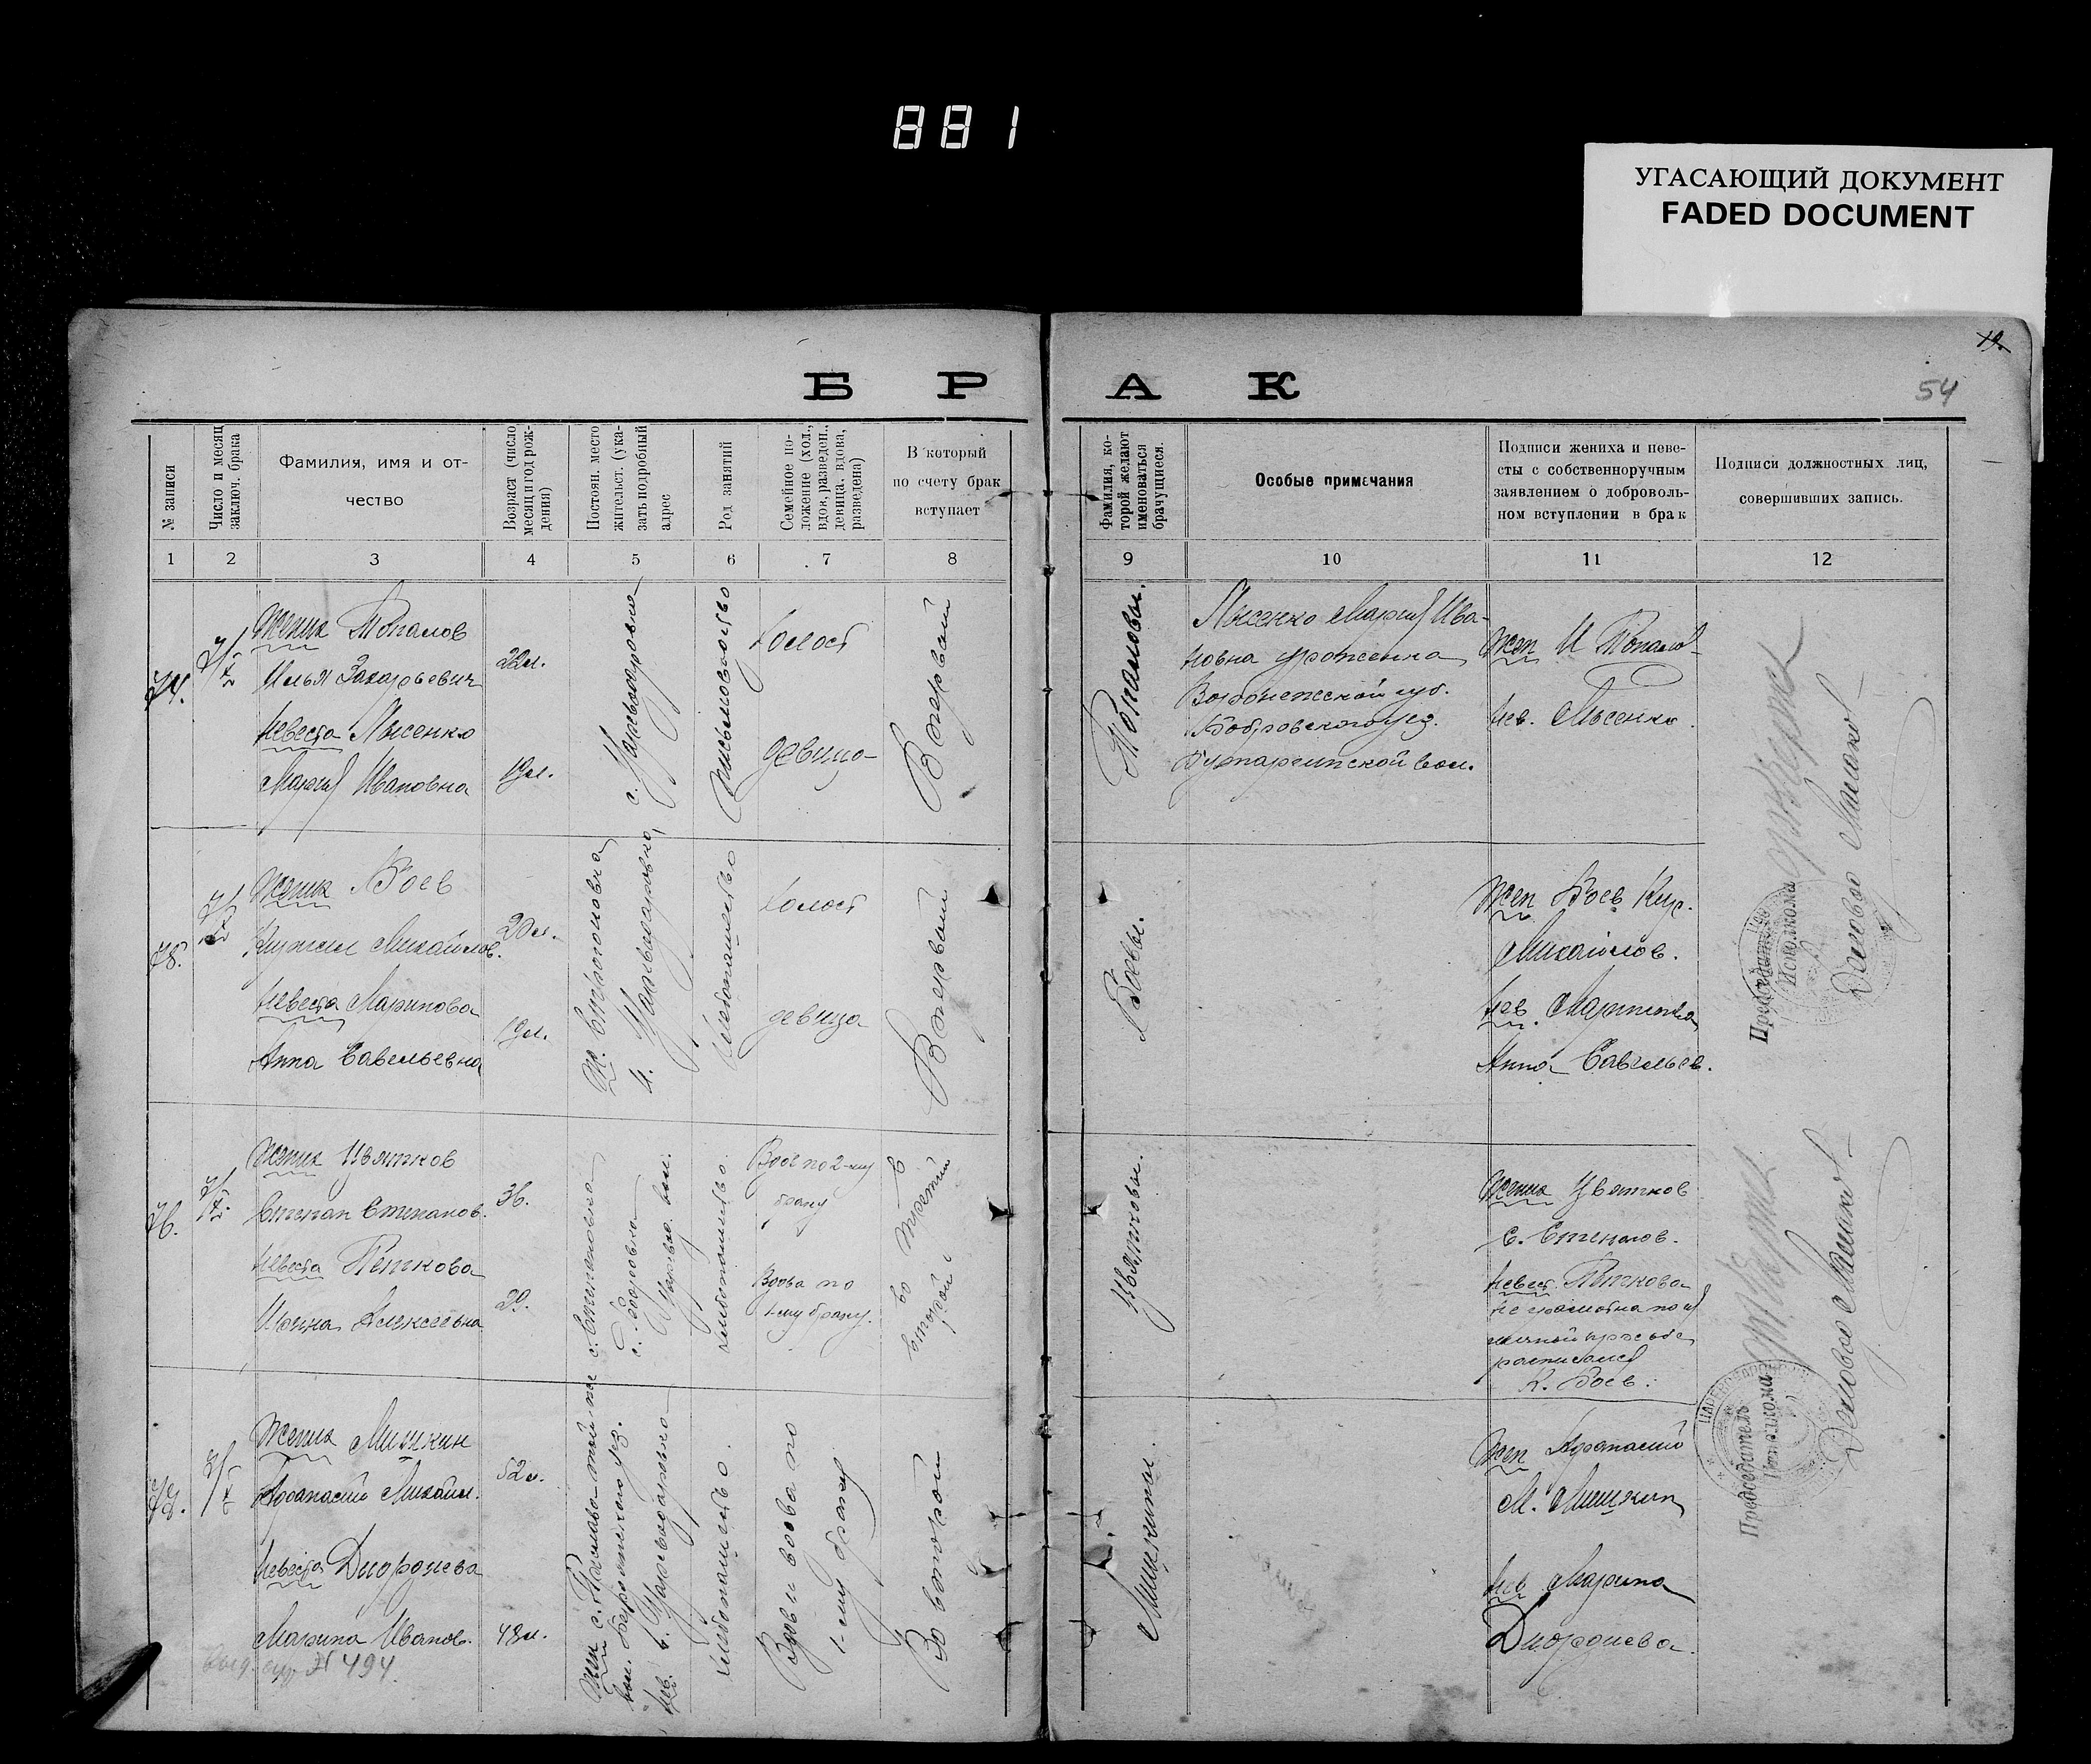 881
УГАСАЮЩИЙ ДОКУМЕНТ
FADED DOCUMENT
19.
54
Б Р А К
№ записи
Число и месяц
заключ. брака
Фамилия, имя и от-
чество
Возраст (число
месяц и год рож-
дения)
Постоян. место
жительст. (ука-
зать подробный
адрес
Род занятий
Семейное по-
ложение (хол.,
вдов., разведен.,
девица, вдова,
разведена)
В который
по счету брак
вступает
Фамилия, ко-
торой желают
именоваться
брачущиеся.
Особые примечания
Подписи жениха и невес-
сты с собственноручным
заявлением о доброволь-
ном вступлении в брак
Подписи должностных лиц,
совершивших запись.
1 2 3 4 5 6 7 8 9 10 11 12
74.
Жених Топалов
Илья Захарьевич
невеста Лысенко
Мария Ивановна
22 л.
19 л.
с. Царьводаровка
Письмоводство
Холост
девица
В первый
Топаловы.
Лысенко Мария Ива-
новна уроженка
Воронежской губ.
Бобровского уез.
вол.
Жен И Топалов
нев. Лысенко.
75.
Жених Боев
Михайлов.
невеста Маринова
Анна Савельевна
20 л.
19 л.
Царьводаровка
хлебопашество
Холост
девица
В первый
Боевы.
Жен Боев Кир.
Михайлов.
нев. Маринова
Анна Савельев.
76.
Жених Цвятков
Степан Степанов.
невеста Петкова
Ирина Алексеевна
36.
29.
с. Степановка
хлебопашество.
Вдов по 2-му
браку
Вдова по
1-му браку.
В третий
во второй
Цвятковы.
Жених Цвятков
С. Степанов.
невест. Петкова
не грамотна по ея
личной просьбе
расписался
К. Боев.
77.
Жених Мишкин
Афанасий Михайл.
невеста Диордиева
Марина Иванов.
№ 494.
52 л.
48 л.
вол. уез.
нев. с. Царьводаровка
хлебопашество.
Вдов и вдова по
1-му браку
Во второй
Мишкины.
Жен Афанасий
М. Мишкин
нев Марина
Диордиева.
Председатель
Исполкома
Председатель
Исполкома